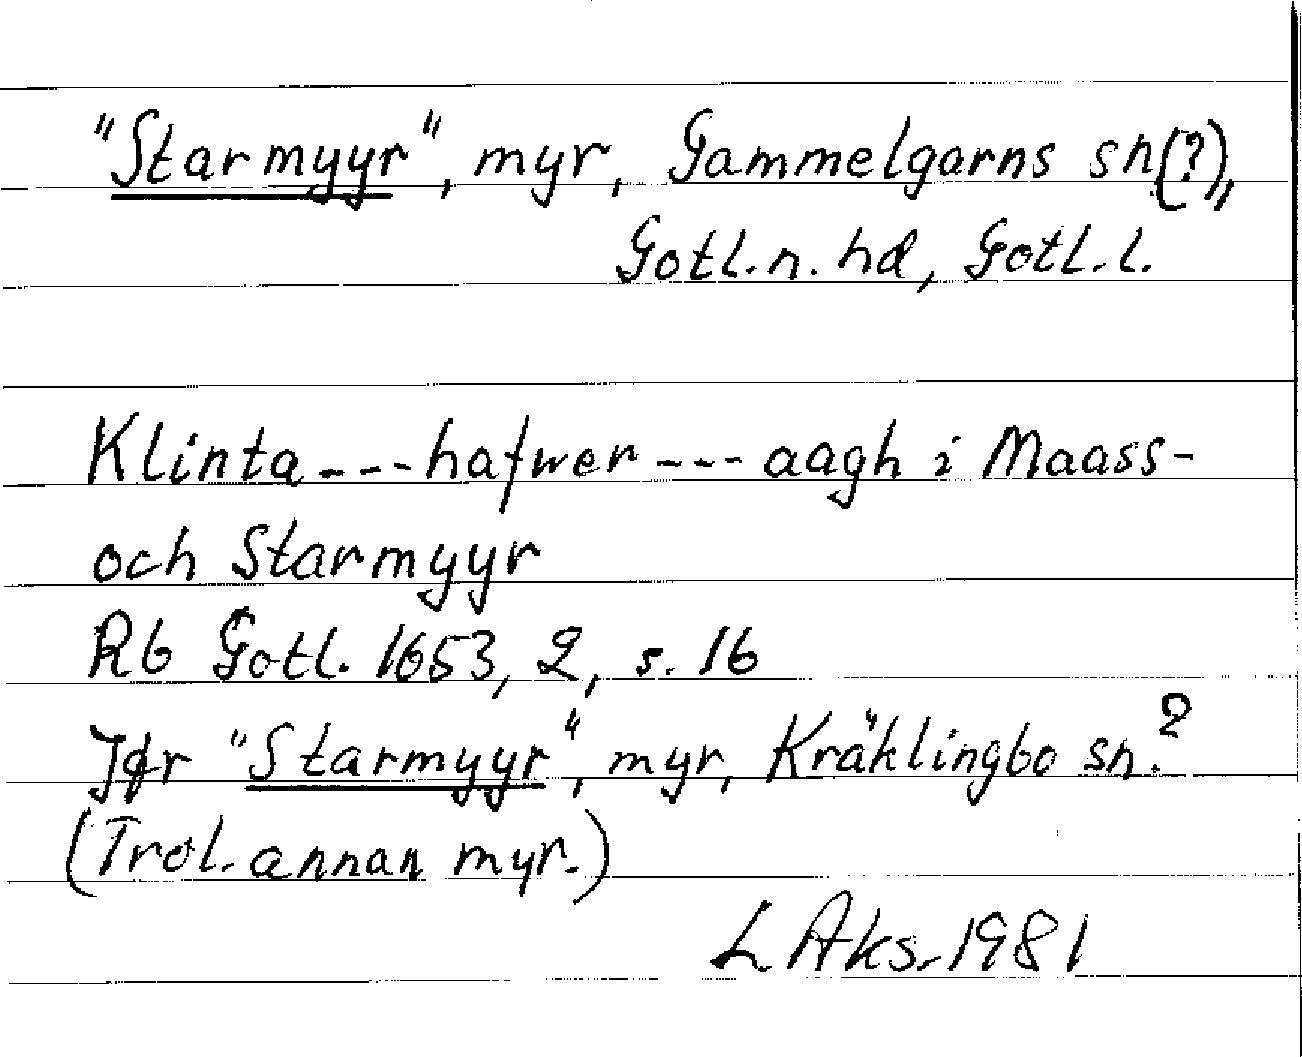 "Starmyyr", myr, Gammelgarns sn(?),
Gotl. n. hd, Gotl. l.
Klinta---hafwer---aagh i Maass-
och Starmyyr
Rb Gotl. 1653, 2, s. 16
Jfr "Starmyyr", myr, Kräklingbo sn.?
(Trol. annan myr.)
L Aks. 1981